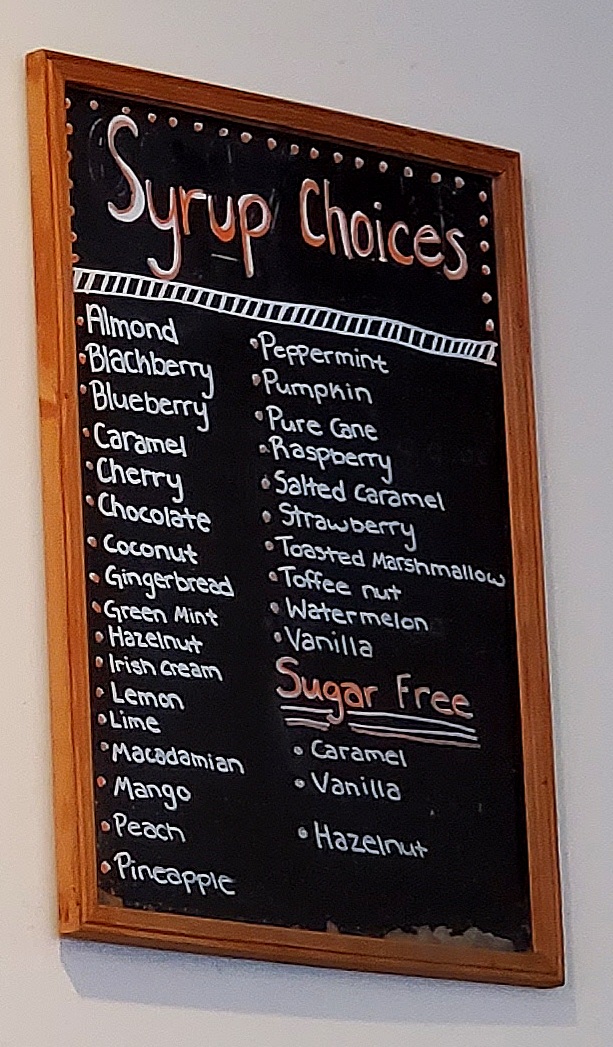 Syrup Choices
Almond
Blackberry
Blueberry
Caramel
Cherry
Chocolate
Coconut
Gingerbread
Green Mint
Hazelnut
Irish Cream
Lemon
Lime
Macadamian
Mango
Peach
Pineapple
Peppermint
Pumpkin
Pure Cane
Raspberry
Salted Caramel
Strawberry
Toasted Marshmallow
Toffee nut
Watermelon
Vanilla
Sugar Free
Caramel
Vanilla
Hazelnut